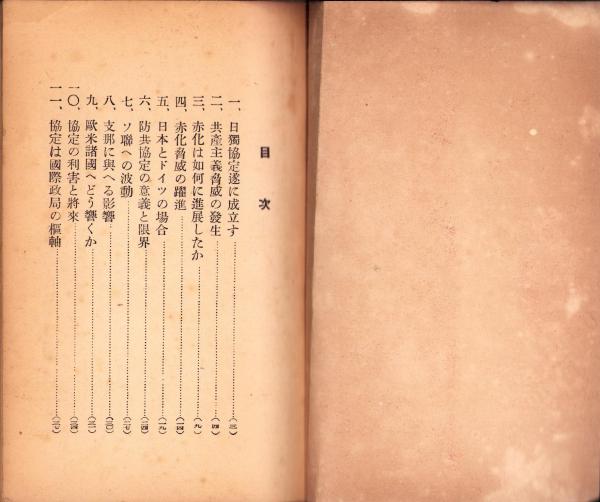 目次
一、日獨協定遂に成立す……（三）
二、共產主義脅威の發生……（四）
三、赤化は如何に進展したか……（九）
四、赤化脅威の躍進……（一四）
五、日本とドイツの場合……（一九）
六、防共協定の意義と限界……（二四）
七、ソ聯への波動……（二七）
八、支那に與へる影響……（三〇）
九、歐米諸國へどう響くか……（三一）
一〇、協定の利害と將來……（三四）
一一、協定は國際政局の樞軸……（三七）